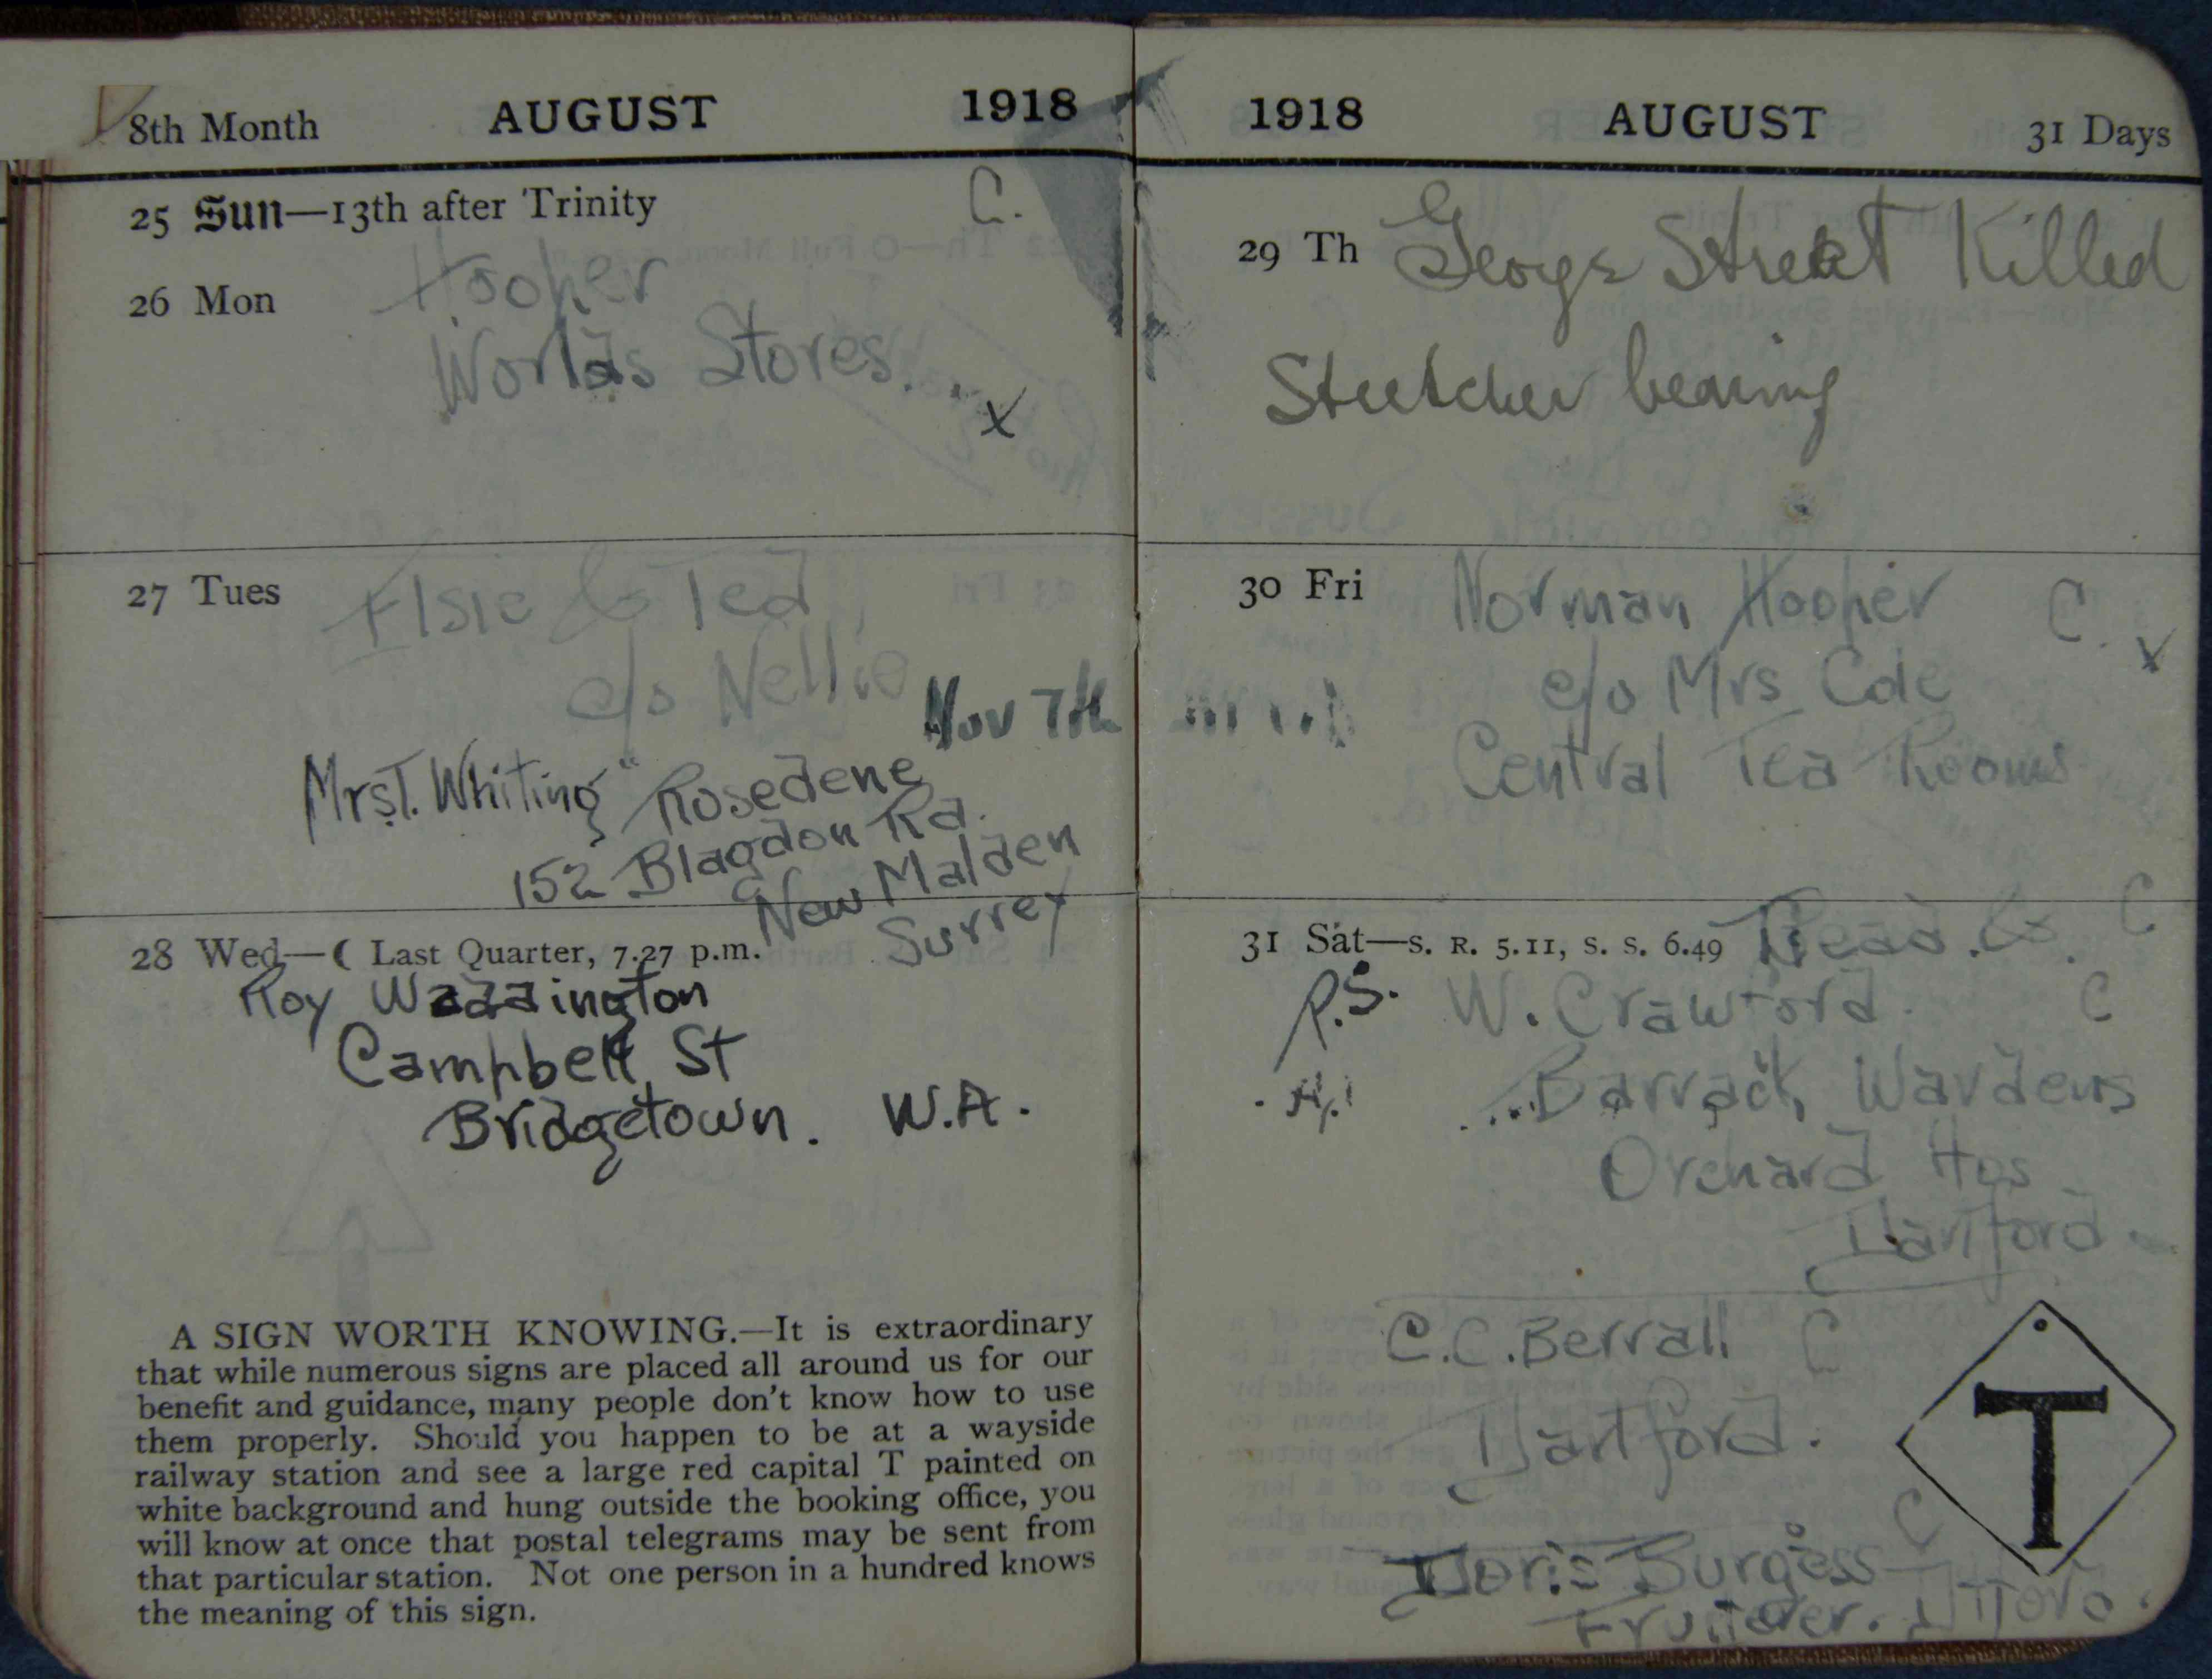 8th Month AUGUST 1918
25 Sun—13th after Trinity C.
Hooper
26 Mon
Worlds Stores. x
27 Tues Elsie & Ted
c/o Nellie
Nov 7th
Mrs T. Whiting "Rosedene
152 Blagdon Rd.
New Malden
Surrey
28 Wed—☾ Last Quarter, 7.27 p.m.
Roy Waddington
Campbell St
Bridgetown. W.A.
A SIGN WORTH KNOWING.—It is extraordinary
that while numerous signs are placed all around us for our
benefit and guidance, many people don't know how to use
them properly. Should you happen to be at a wayside
railway station and see a large red capital T painted on
white background and hung outside the booking office, you
will know at once that postal telegrams may be sent from
that particular station. Not one person in a hundred knows
the meaning of this sign.
1918 AUGUST 31 Days
29 Th George Street Killed
Stretcher bearing
30 Fri Norman Hooper C. x
c/o Mrs Cole
Central Tea Rooms
31 Sat—S. R. 5.11, S. S. 6.49 Read & C
P.S. W. Crawford. C
Barrack Wardens
Orchard Hos
Dartford.
C.C. Berrall C
Dartford.
T
C
Doris Burgess
Fruiterer. Ditto.